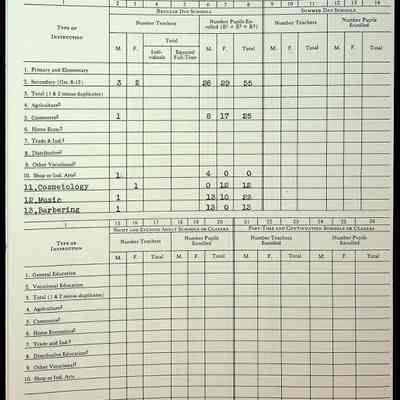 1 2 3 4 5 6 7 8 9 10 11 12 13 14
REGULAR DAY SCHOOLS SUMMER DAY SCHOOLS
TYPE OF INSTRUCTION Number Teachers Number Pupils Enrolled Number Teachers Number Pupils Enrolled
M. F. Total M. F. Total M. F. Total M. F. Total
Individuals Equated Full-Time
1. Primary and Elementary
2. Secondary 3 2 26 29 55
3. Total (1 & 2 minus duplicates)
4. Agriculture
5. Commerce 1 8 17 25
6. Home Econ.
7. Trade & Ind.
8. Distributive
9. Other Vocational
10. Shop or Ind. Arts 1 4 0 0
11.Cosmetology 1 0 12 12
12.Music 1 13 10 23
13.Barbering 1 13 0 13
1 15 16 17 18 19 20 21 22 23 24 25 26
NIGHT AND EVENING ADULT SCHOOLS OR CLASSES PART-TIME AND CONTINUATION SCHOOLS OR CLASSES
TYPE OF INSTRUCTION Number Teachers Number Pupils Enrolled Number Teachers Enrolled Number Pupils Enrolled
M. F. Total M. F. Total M. F. Total M. F. Total
1. General Education
2. Vocational Education
3. Total (1 & 2 minus duplicates)
4. Agriculture
5. Commerce
6. Home Economics
7. Trade and Ind.
8. Distributive Education
9. Other Vocational
10. Shop or Ind. Arts